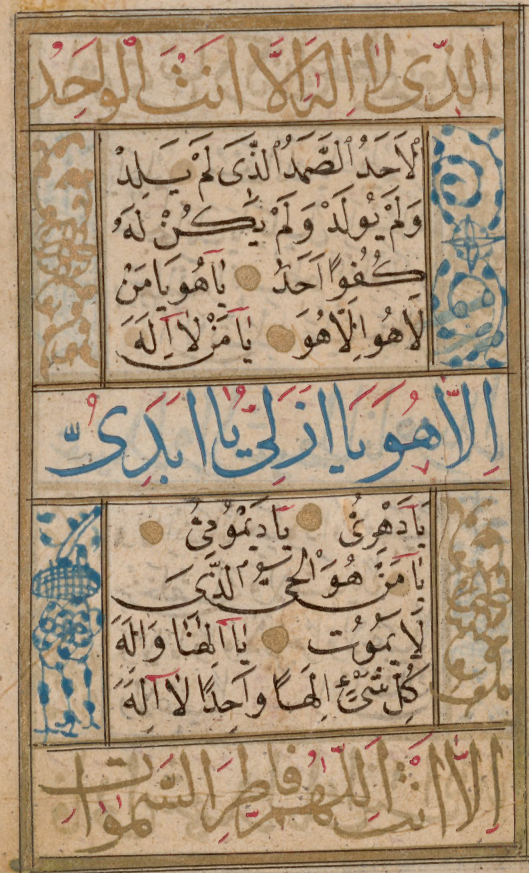 الَّذِي لَا إِلَهَ إِلَّا أَنْتَ الْوَاحِدُ
الْاَحَدُ الصَّمَدُ الَّذِی لَمْ يَلِدْ
وَلَمْ يُولَدْ وَلَمْ يَكُنْ لَهُ
كُفُوًا اَحَدٌ يَا هُوَ يَا مَنْ
لَا هُوَ اِلَّا هُوَ يَا مَنْ لَا اِلَهَ
اِلَّا هُوَ يَا اَزَلِیُّ يَا اَبَدِیُّ
يَا دَهْرِیُّ يَا دَيْمُومِیُّ
يَا مَنْ هُوَ الْحَیُّ الَّذِی
لَا يَمُوتُ يَا اِلٰهَنَا وَاِلَهَ
كُلِّ شَیْءٍ اِلٰهًا وَاحِدًا لَا اِلَهَ
اِلَّا اَنْتَ اَللّٰهُمَّ فَاطِرَ السَّمٰوَاتِ